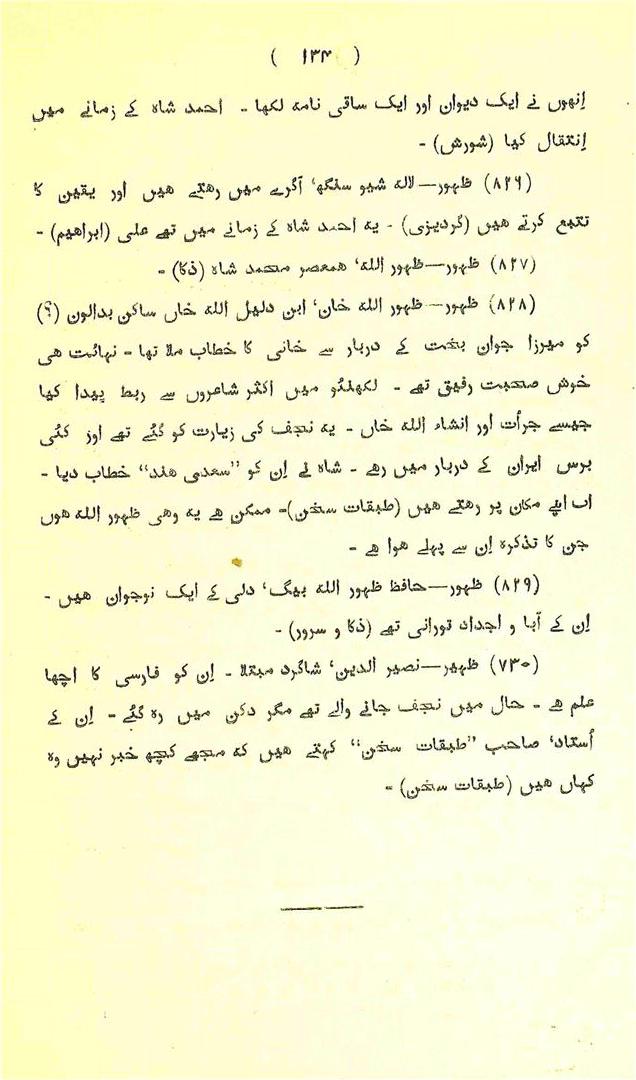 ( ۱۳۴ )
اِنھوں نے ایک دیوان اور ایک ساقی نامہ لکھا - احمد شاہ کے زمانے میں
اِنتقال کیا (شورش) -
(۸۲۶) ظہور—لالہ شیو سنگھ، آگرے میں رھتے ھیں اور یقین کا
تتبع کرتے ھیں (گردیزی) - یہ احمد شاہ کے زمانے میں تھے علی (ابراھیم) -
(۸۲۷) ظہور—ظہور اللہ، ھمعصر محمد شاہ (ذکا) -
(۸۲۸) ظہور—ظہور اللہ خان، ابن دلیل اللہ خاں ساکن بدالون (؟)
کو میرزا جوان بخت کے دربار سے خانی کا خطاب ملا تھا - نہائت ھی
خوش صحبت رفیق تھے - لکھنئو میں اکثر شاعروں سے ربط پیدا کیا
جیسے جرأت اور انشاء اللہ خاں - یہ نجف کی زیارت کو گئے تھے اور کئی
برس ایران کے دربار میں رھے - شاہ نے اِن کو ”سعدی ھند“ خطاب دیا -
اب اپنے مکان پر رھتے ھیں (طبقات سخن)- ممکن ھے یہ وھی ظہور اللہ ھوں
جن کا تذکرہ اِن سے پہلے ھوا ھے -
(۸۲۹) ظہور—حافظ ظہور اللہ بیگ، دلی کے ایک نوجوان ھیں -
اِن کے آبا و اجداد تورانی تھے (ذکا و سرور) -
(۷۳۰) ظہیر—نصیر الدین، شاگرد مبتلا - اِن کو فارسی کا اچھا
علم ھے - حال میں نجف جانے والے تھے مگر دکن میں رہ گئے - اِن کے
اُستاد، صاحب ”طبقات سخن“ کہتے ھیں کہ مجھے کچھ خبر نہیں وہ
کہاں ھیں (طبقات سخن) -